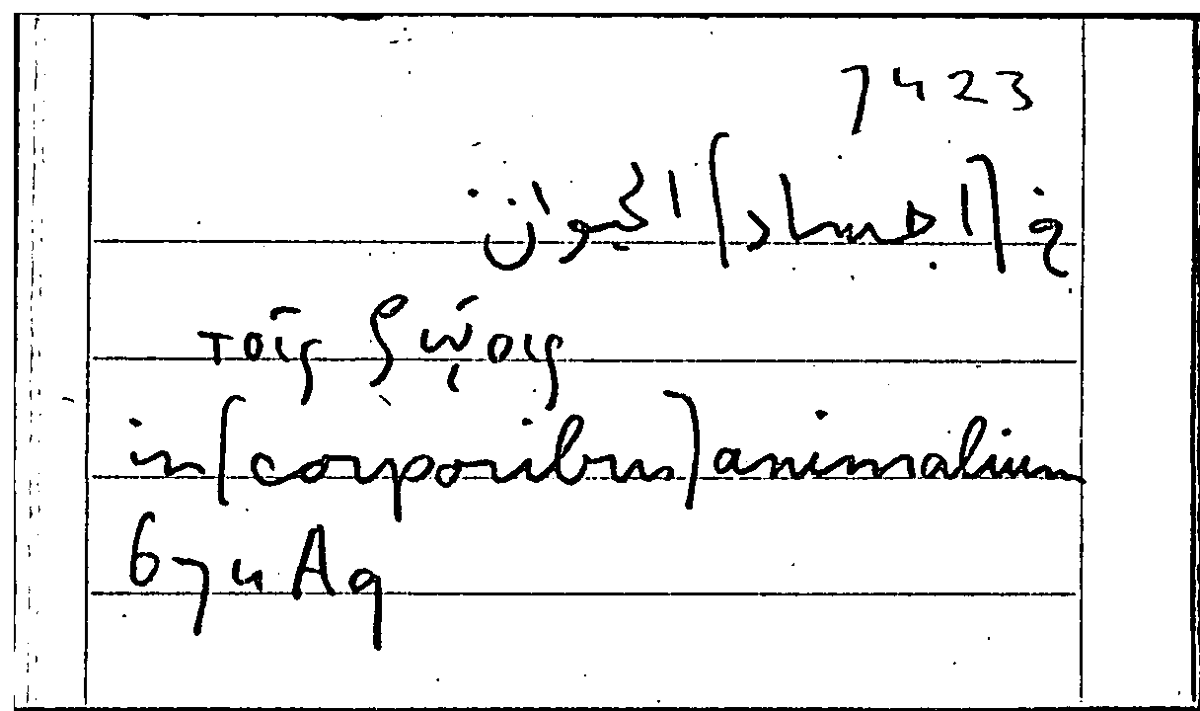 7423
في [اجساد] الحيوان
τοῖς ζῴοις
in [corporibus] animalium
674 A9